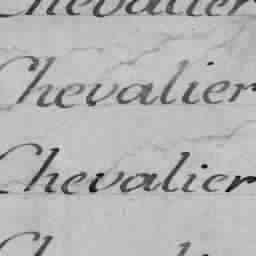 Chevalier
Chevalier
Chevalier